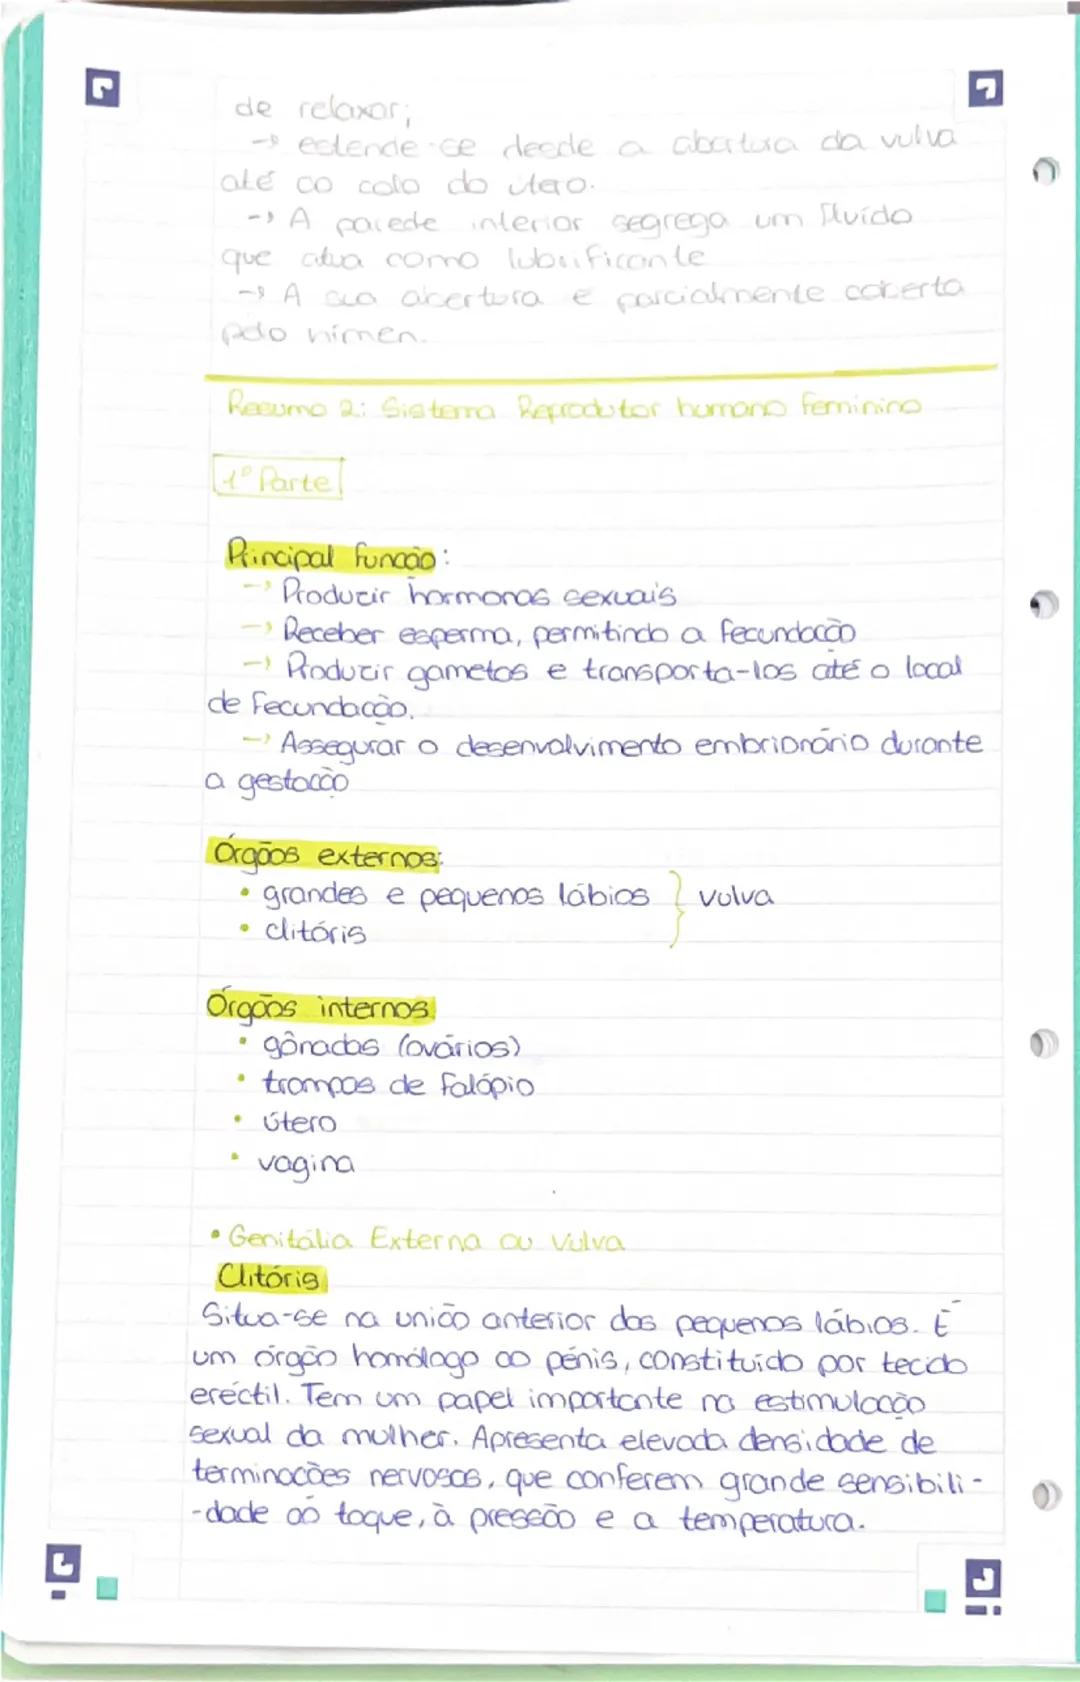 de relaxar;
→ estende-se desde a abertura da vulva
até ao colo do útero.
→ A parede interior segrega um fluído
que atua como lubrificante
→ A sua abertura é parcialmente coberta
pelo hímen.
Resumo 2: Sistema Reprodutor humano feminino
1º Parte
Principal função:
→ Produzir hormonas sexuais
→ Receber esperma, permitindo a fecundação
→ Produzir gametas e transporta-los até o local
de fecundação.
→ Assegurar o desenvolvimento embrionário durante
a gestação
Órgãos externos:
• grandes e pequenos lábios } vulva
• clitóris
Órgãos internos:
• gônadas (ovários)
• trompas de falópio
• útero
• vagina
• Genitália Externa ou Vulva
Clitóris
Situa-se na união anterior dos pequenos lábios. É
um órgão homólogo ao pénis, constituído por tecido
eréctil. Tem um papel importante na estimulação
sexual da mulher. Apresenta elevada densidade de
terminações nervosas, que conferem grande sensibili-
-dade ao toque, à pressão e a temperatura.